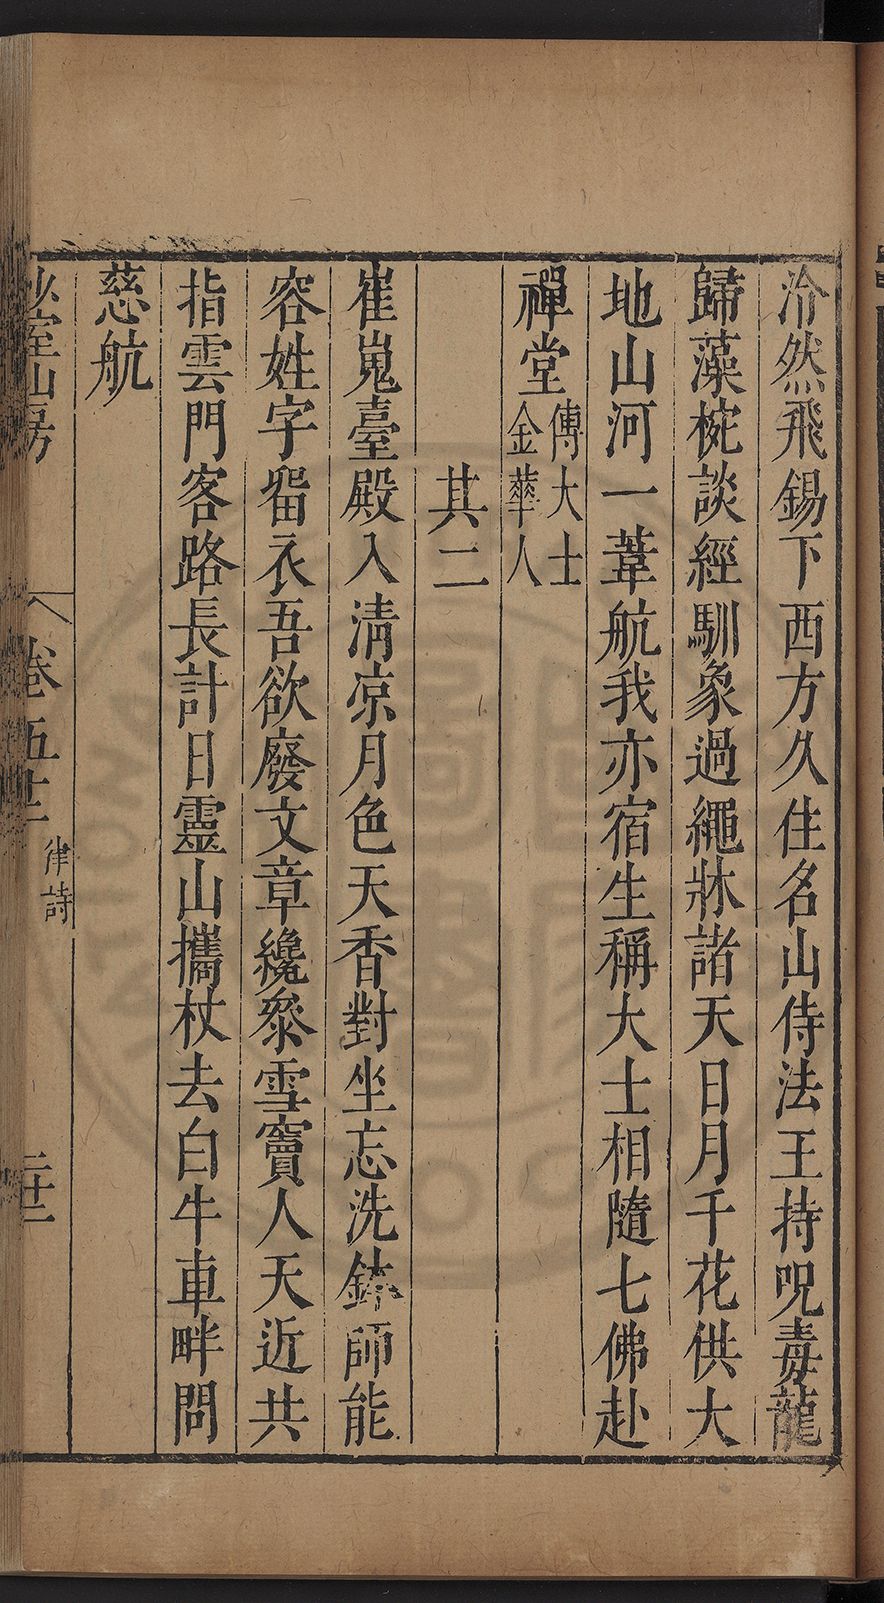 泠然飛錫下西方久住名山侍法王持呪毒龍
歸藻椀談經馴象過繩牀諸天日月千花供大
地山河一葦航我亦宿生稱大士相隨七佛赴
禪堂傅大士金華人
其二
崔嵬臺殿入清凉月色天香對坐忘洗鉢師能
容姓字畱衣吾欲廢文章纔叅雪竇人天近共
指雲門客路長計日靈山攜杖去白牛車畔問
慈航
少室山房
卷五十二
律詩
二十二